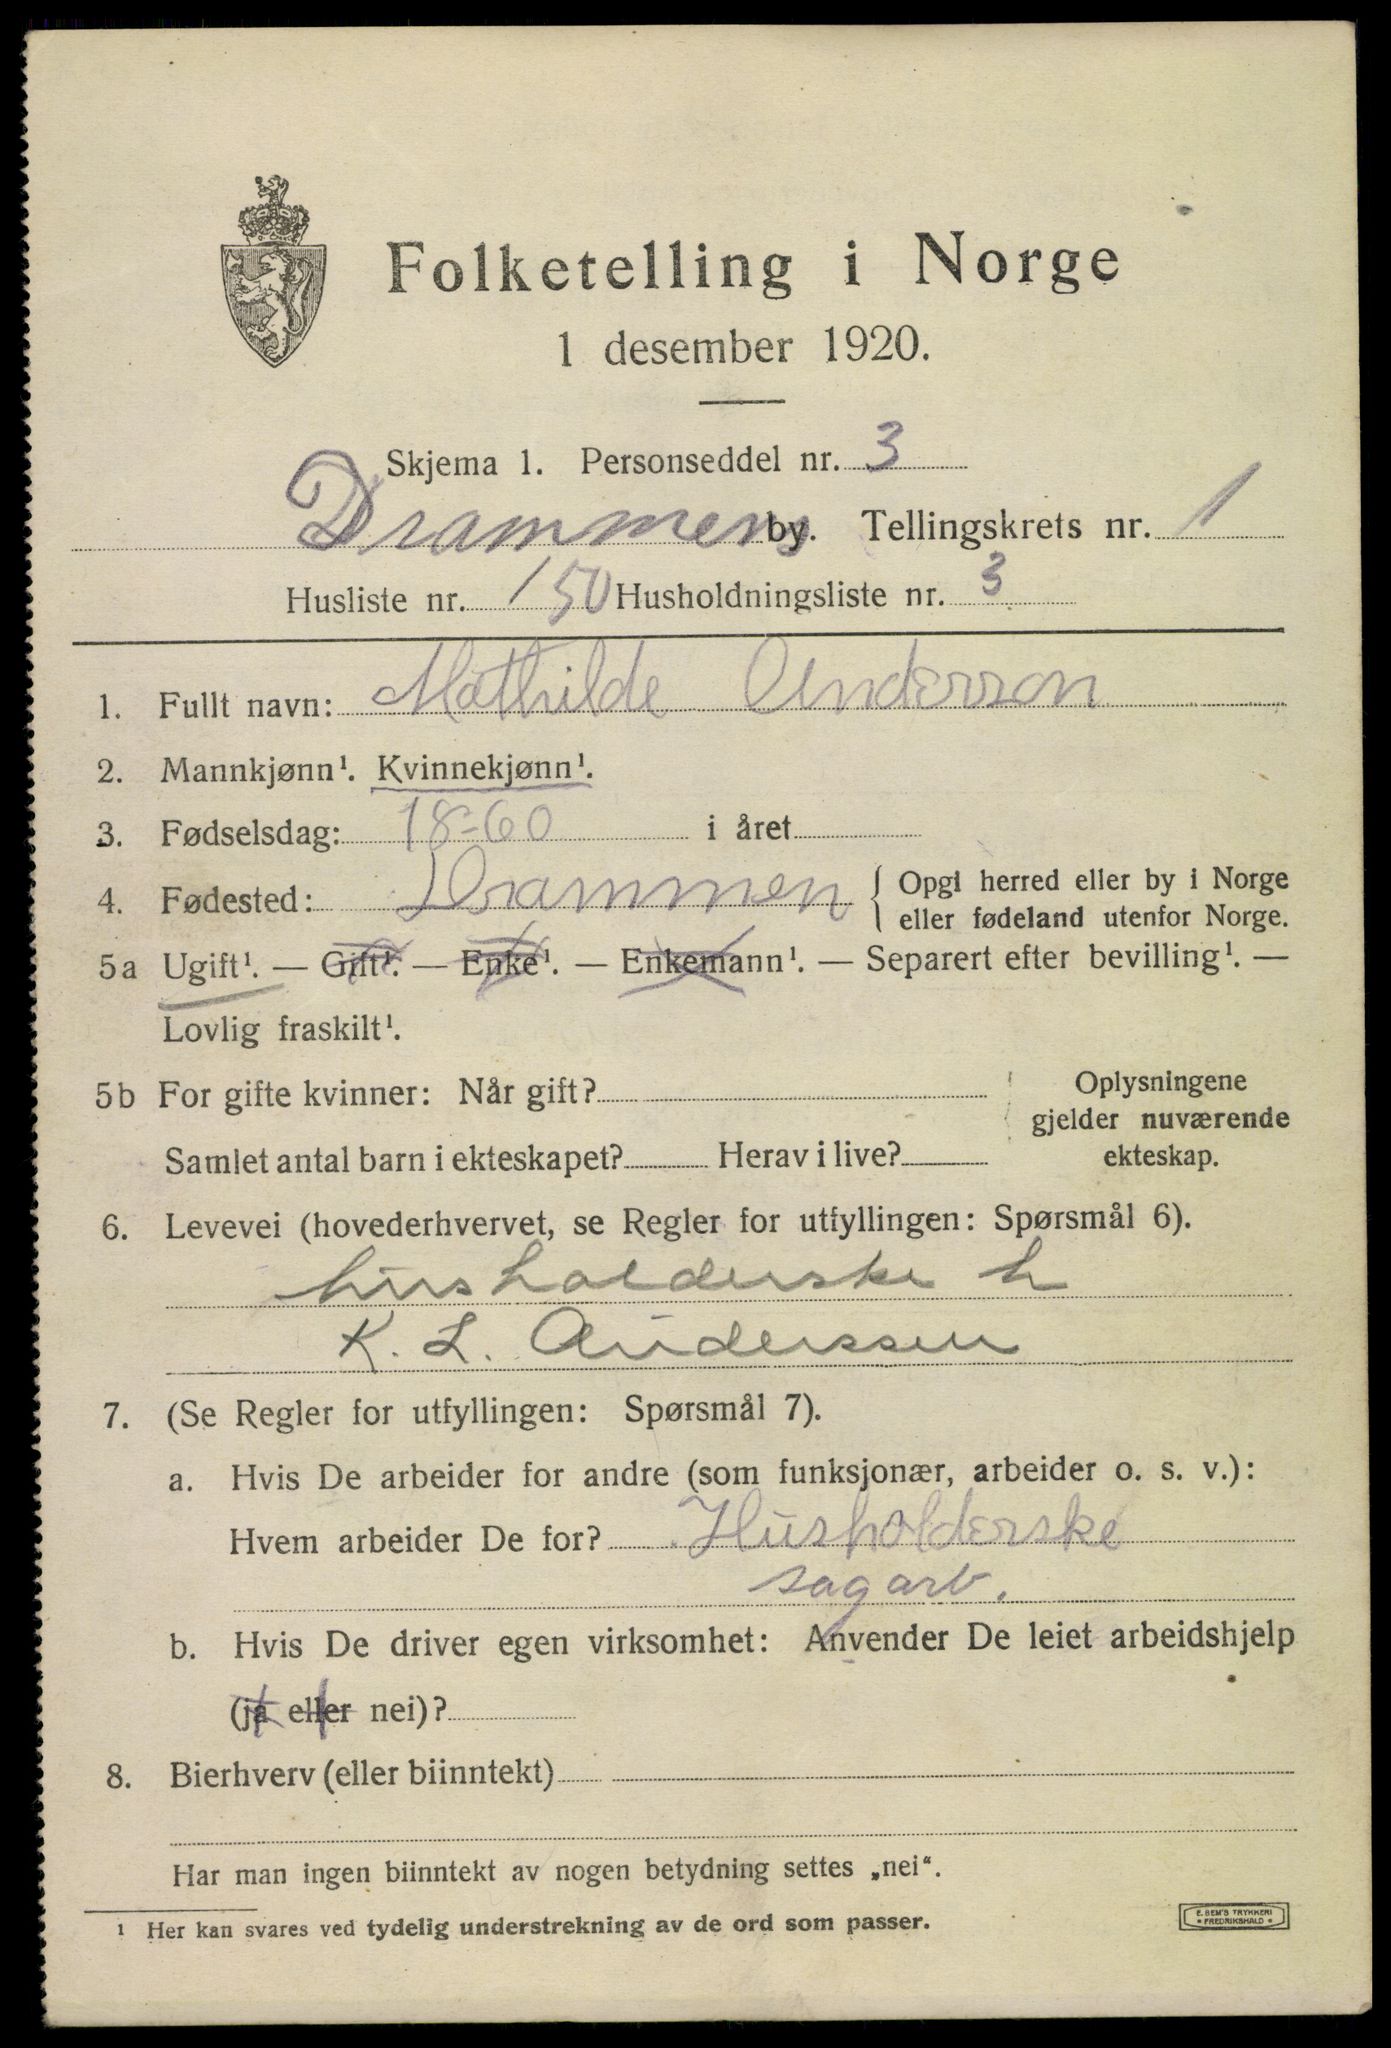 Folketelling i Norge
1 desember 1920.
Skjema 1. Personseddel nr. 3
Drammens by. Tellingskrets nr. 1
Husliste nr. 150 Husholdningsliste nr. 3
1. Fullt navn: Mathilde Anderson
2. Mannkjønn¹. Kvinnekjønn¹.
3. Fødselsdag: 18-60 i året
4. Fødested: Drammen { Opgi herred eller by i Norge
eller fødeland utenfor Norge.
5a Ugift¹. — Gift¹. — Enke¹. — Enkemann¹. — Separert efter bevilling¹. —
Lovlig fraskilt¹.
5b For gifte kvinner: Når gift?
Samlet antal barn i ekteskapet? Herav i live?
Oplysningene
gjelder nuværende
ekteskap.
6. Levevei (hovederhvervet, se Regler for utfyllingen: Spørsmål 6).
husholderske h
K. L. Anderssen
7. (Se Regler for utfyllingen: Spørsmål 7).
a. Hvis De arbeider for andre (som funksjonær, arbeider o. s. v.):
Hvem arbeider De for? Husholderske
sagarb.
b. Hvis De driver egen virksomhet: Anvender De leiet arbeidshjelp
(ja eller nei)?
8. Bierhverv (eller biinntekt)
Har man ingen biinntekt av nogen betydning settes „nei“.
¹ Her kan svares ved tydelig understrekning av de ord som passer.
E. SEM'S TRYKKERI
* FREDRIKSHALD *